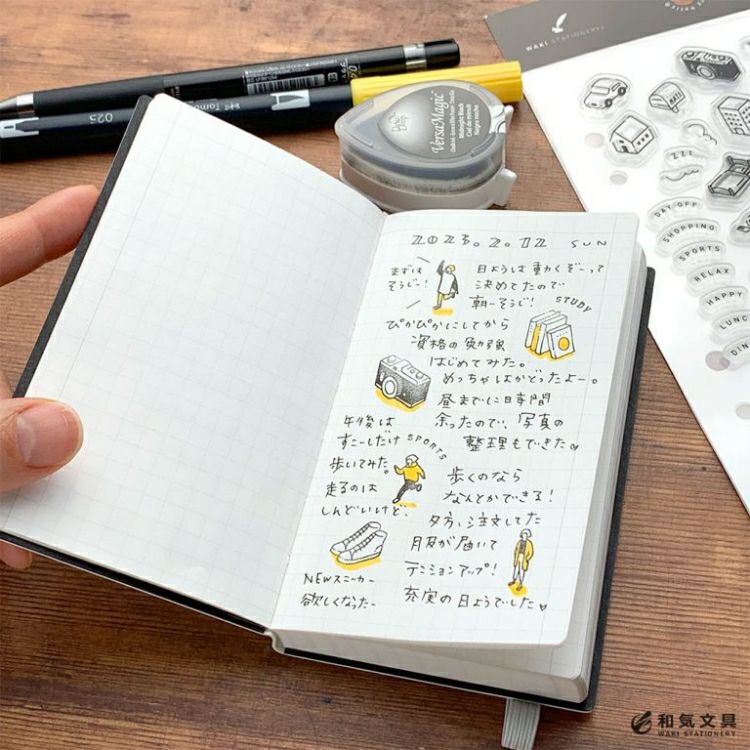 WAKI STATIONERY
025
Tombow
VersaMagic
Midnight Black
Ciel de minuit
Negro noche
ZZZ
DAY OFF
SHOPPING
SPORTS
RELAX
HAPPY
LUNC
DIN
2023.2.12 SUN
まずは
そうじー!
日ようは動くぞーって
決めてたので
朝一そうじ!
STUDY
ぴかぴかにしてから
資格の勉強
はじめてみた。
めっちゃはかどったよー。
昼までに時間
余ったので、写真の
整理もできた♡
午後は
すこーしだけ
SPORTS
歩いてみた。
走るのは
しんどいけど、
歩くのなら
なんとかできる!
NEWスニーカー
欲しくなったー
夕方、注文してた
が届いて
テンションアップ!
充実の日ようでした♡
和気文具
WAKI STATIONERY